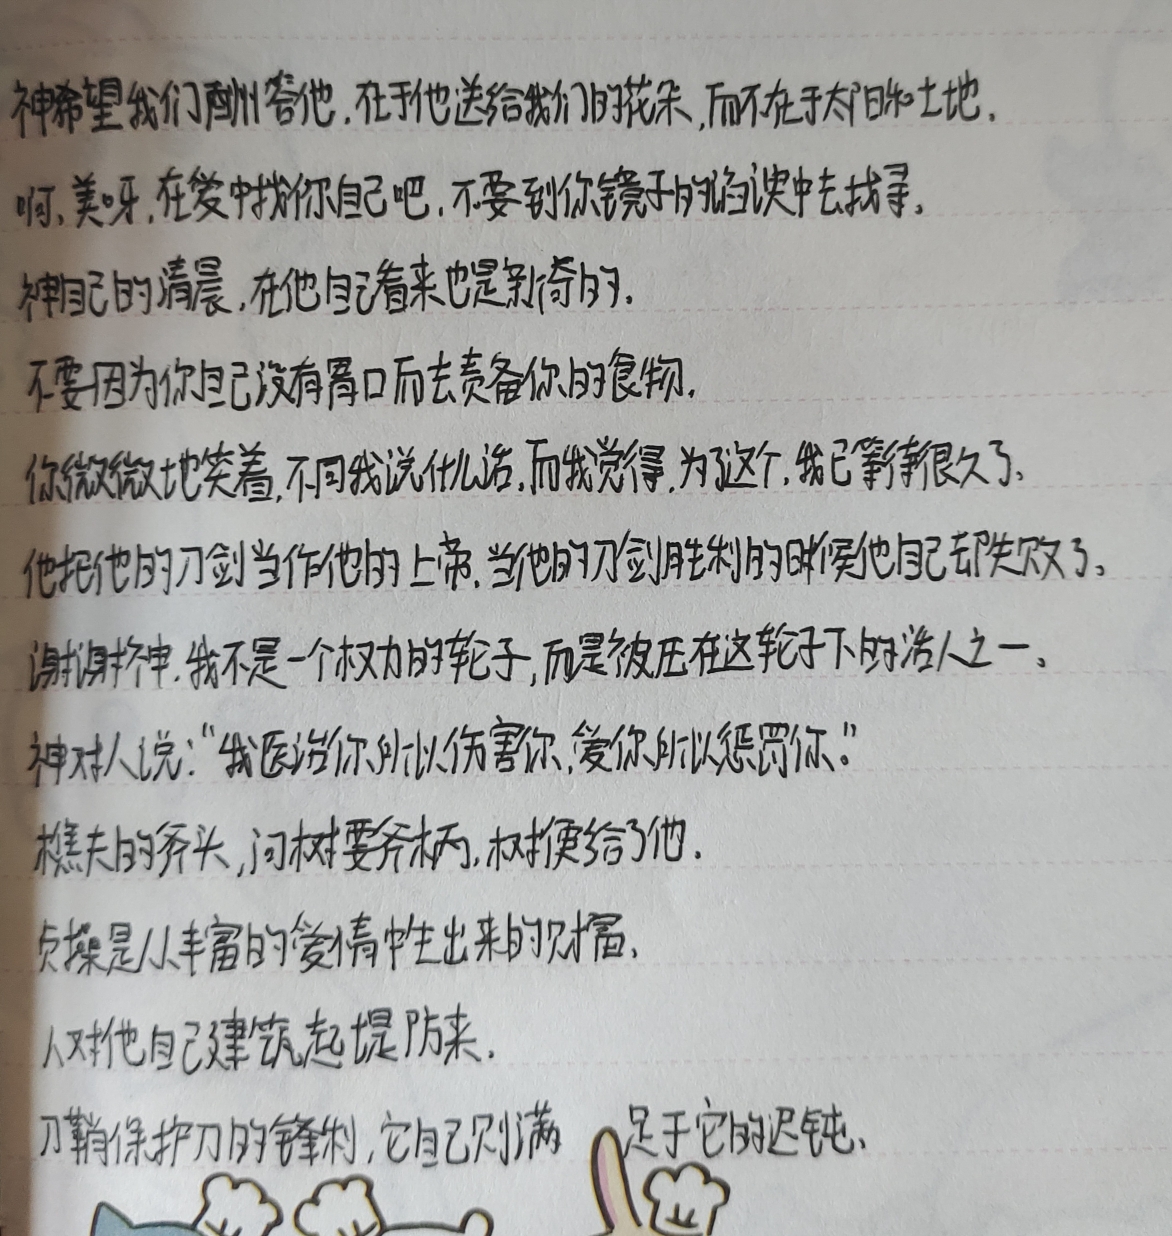 神希望我们酬答他,在于他送给我们的花朵,而不在于太阳和土地.
啊、美呀,在爱中找你自己吧.不要到你镜子的谄谀中去找寻.
神自己的清晨,在他自己看来也是新奇的.
不要因为你自己没有胃口而去责备你的食物.
你微微地笑着,不同我说什么话,而我觉得,为了这个,我已等待很久了.
他把他的刀剑当作他的上帝.当他的刀剑胜利的时候他自己却失败了。
谢谢神.我不是一个权力的轮子,而是被压在这轮子下的活人之一、
神对人说:“我医治你所以伤害你,爱你所以惩罚你.”
樵夫的斧头,问树要斧柄,树便给了他.
贞操是从丰富的爱情中生出来的财富.
人对他自己建筑起堤防来.
刀鞘保护刀的锋利,它自己则满足于它的迟钝、